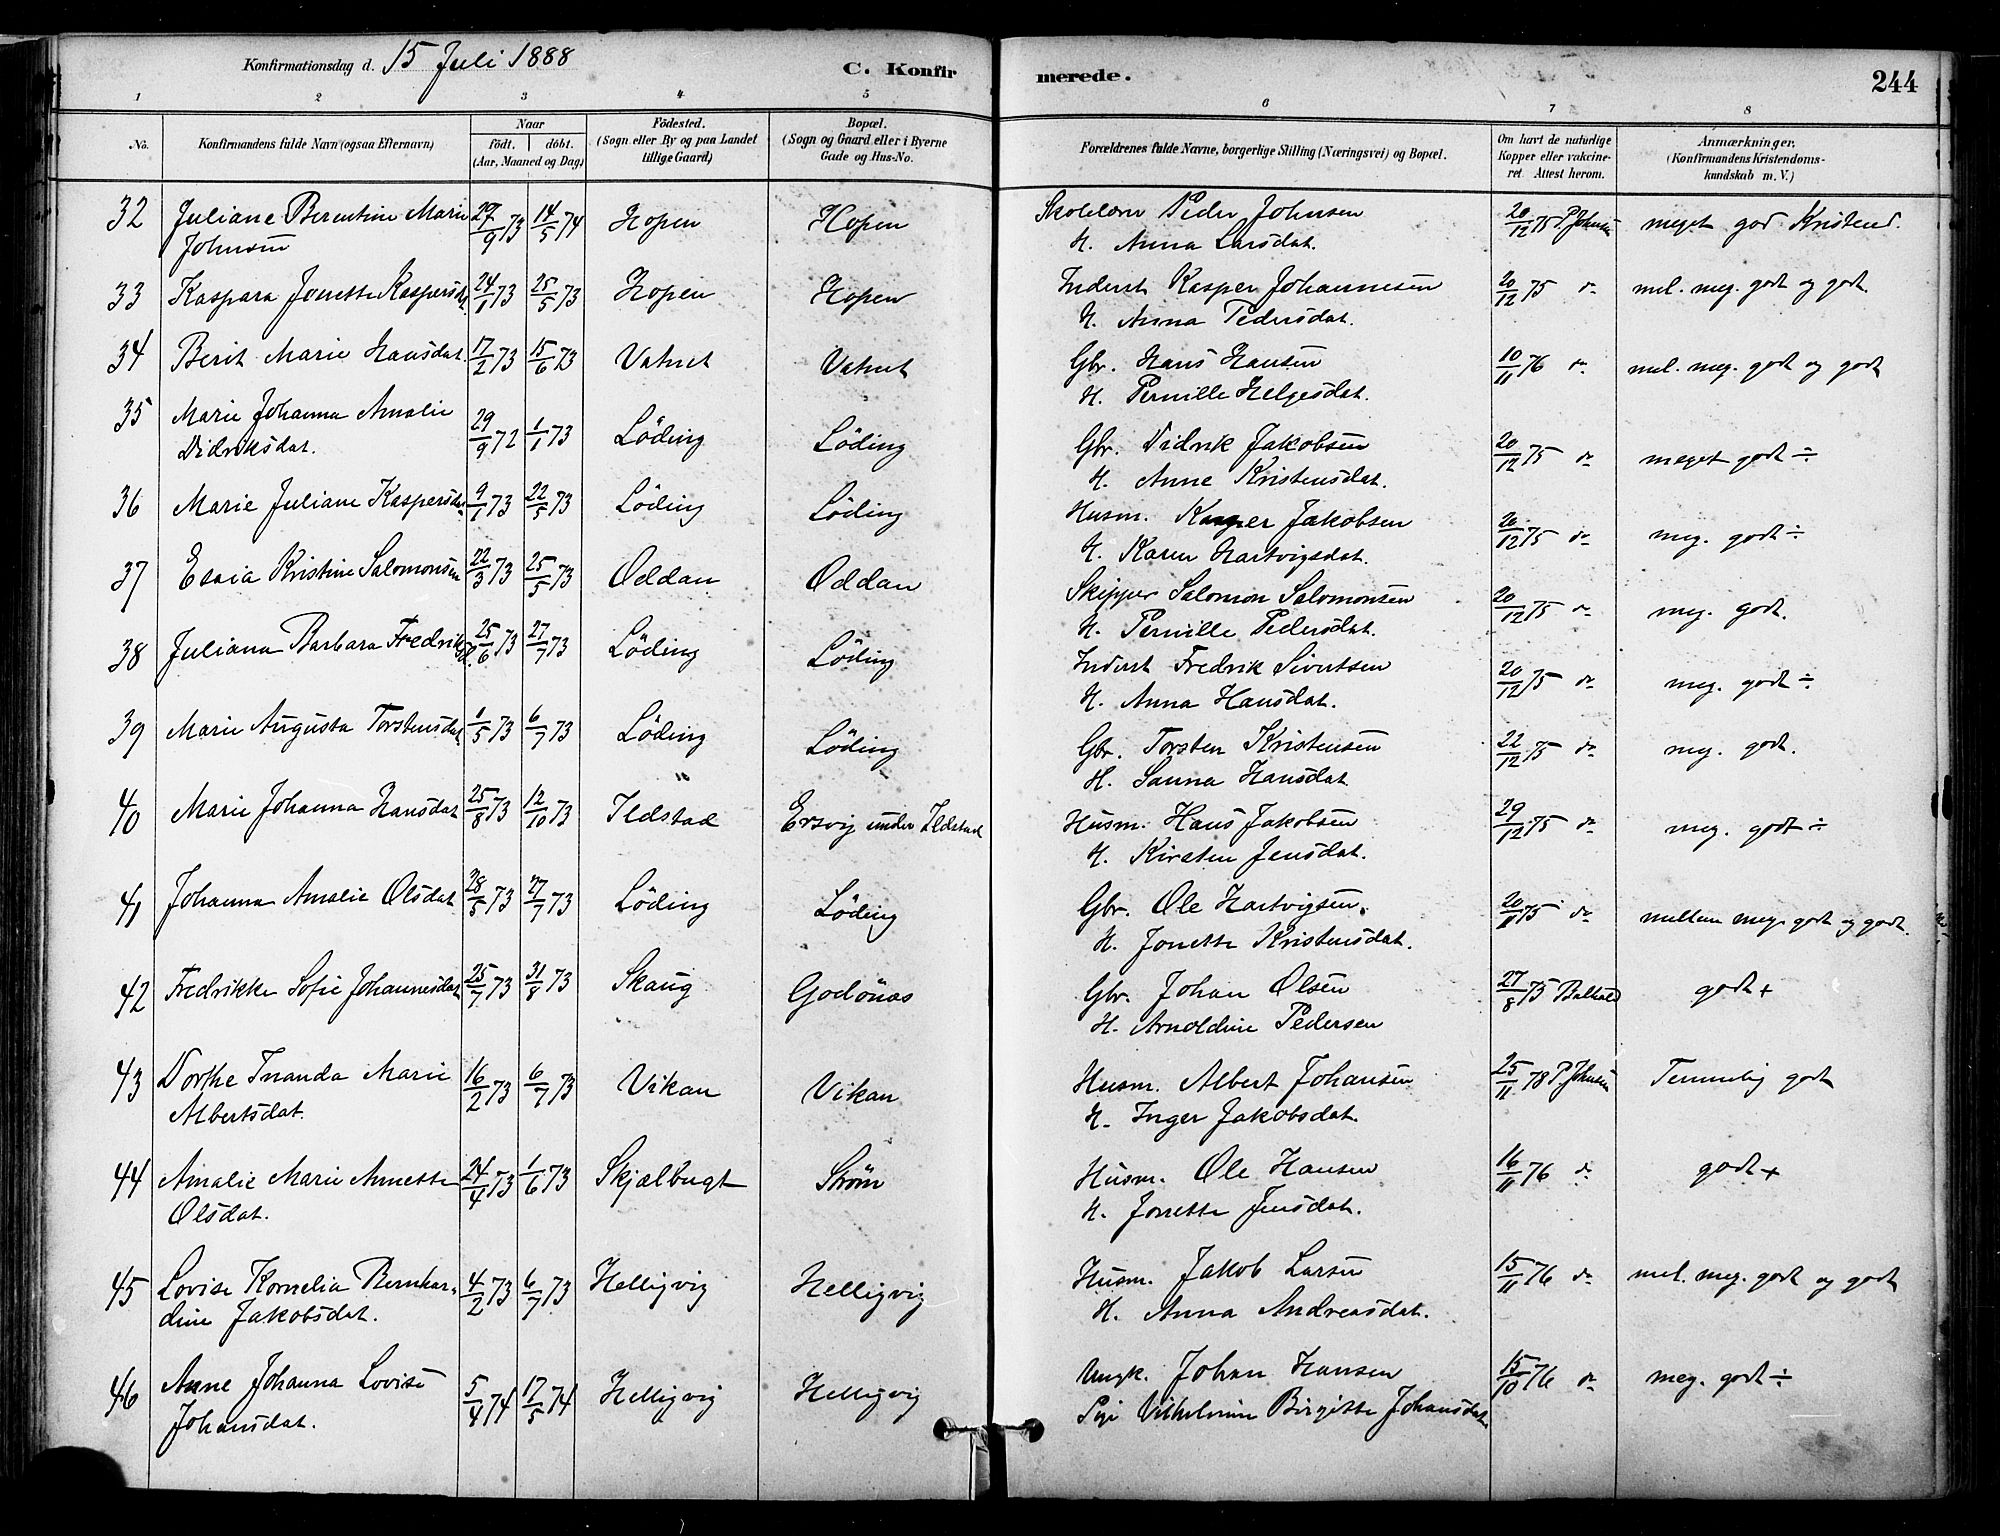 Konfirmationsdag d. 15 Juli 1888
C. Konfirmerede.
244
1 2 3 4 5 6 7 8
No.
Konfirmandens fulde Navn (ogsaa Efternavn)
Naar
født. døbt.
(Aar, Maaned og Dag)
Fødested.
(Sogn eller By og paa Landet
tillige Gaard)
Bopæl.
(Sogn og Gaard eller i Byerne
Gade og Hus-No.
Forældrenes fulde Navne, borgerlige Stilling (Næringsvei) og Bopæl.
Om havt de naturlige
Kopper eller vakcine-
ret. Attest herom.
Anmærkninger.
(Konfirmandens Kristendoms-
kundskab m. V.)
32 Juliane Berentine Marie 27/9 73 14/5 74 Hopen Hopen Skolelærer Peder Johnsen 20/12 75 P Johnsen meget god Kristend.
Johnsen H. Anna Larsdat.
33 Kaspara Jonette Kaspersdat 24/1 73 25/5 73 Hopen Hopen Inderst Kasper Johannesen 20/12 75 do mel. meg. godt og godt
H. Anna Pedersdat.
34 Berit Marie Hansdat. 17/2 73 15/6 73 Vatnet Vatnet Gbr. Hans Hansen 10/11 76 do mel. meg. godt og godt
H. Pernille Helgesdat.
35 Marie Johanna Amalie
Didriksdat. 29/9 72 1/1 73 Löding Löding Gbr. Didrik Jakobsen 20/12 75 do meget godt ÷
H. Anne Kristensdat.
36 Marie Juliane Kaspersdat 9/1 73 22/5 73 Löding Löding Husm. Kasper Jakobsen 20/12 75 do meg. godt ÷
H. Karen Hartvigsdat.
37 Esaia Kristine Salomonsen 22/3 73 25/5 73 Oddan Oddan Skipper Salomon Salomonsen 20/12 75 do meg. godt.
H. Pernille Pedersdat.
38 Juliana Barbara Fredriksd. 25/6 73 27/7 73 Löding Löding Inderst Fredrik Sivertsen 20/12 75 do meg. godt ÷
H. Anna Hansdat.
39 Marie Augusta Torstensdat 1/5 73 6/7 73 Löding Löding Gbr. Torsten Kristensen 22/12 75 do meg. godt.
H. Sanna Hansdat
40 Marie Johanna Hansdat 25/8 73 12/10 73 Ildstad Ersvig under Ildstad Husm. Hans Jakobsen 29/12 75 do meg. godt ÷
H. Kirsten Jensdat.
41 Johanna Amalie Olsdat 28/5 73 27/7 73 Löding Löding Gbr. Ole Hartvigsen. 20/11 75 do mellem meg. godt og godt.
H. Jonette Kristensdat.
42 Fredrikke Sofie Johannesdat 25/7 73 31/8 73 Skaug Godönæs Gbr. Johan Olsen 27/8 75 godt +
H. Arnoldine Pedersen
43 Dorthe Inanda Marie 16/2 73 6/7 73 Vikan Vikan Husm. Albert Johansen 25/11 78 P Johnsen Temmelig godt
Albertsdat. H. Inger Jakobsdat.
44 Amalie Marie Annette 24/4 73 1/6 73 Skjælbugt Ström Husm. Ole Hansen 16/11 76 do godt +
Olsdat. H. Jonette Jensdat.
45 Lovise Kornelia Bernhar- 4/2 73 6/7 73 Helligvig Helligvig Husm. Jakob Larsen 15/11 76 do mel. meg. godt og godt
dine Jakobsdat. H. Anna Andreasdat.
46 Anne Johanna Lovise 5/4 74 17/5 74 Helligvig Helligvig Ungk. Johan Hansen 15/10 76 do meg. godt ÷
Johansdat. Pige Vilhelmine Birgitte Johansdat